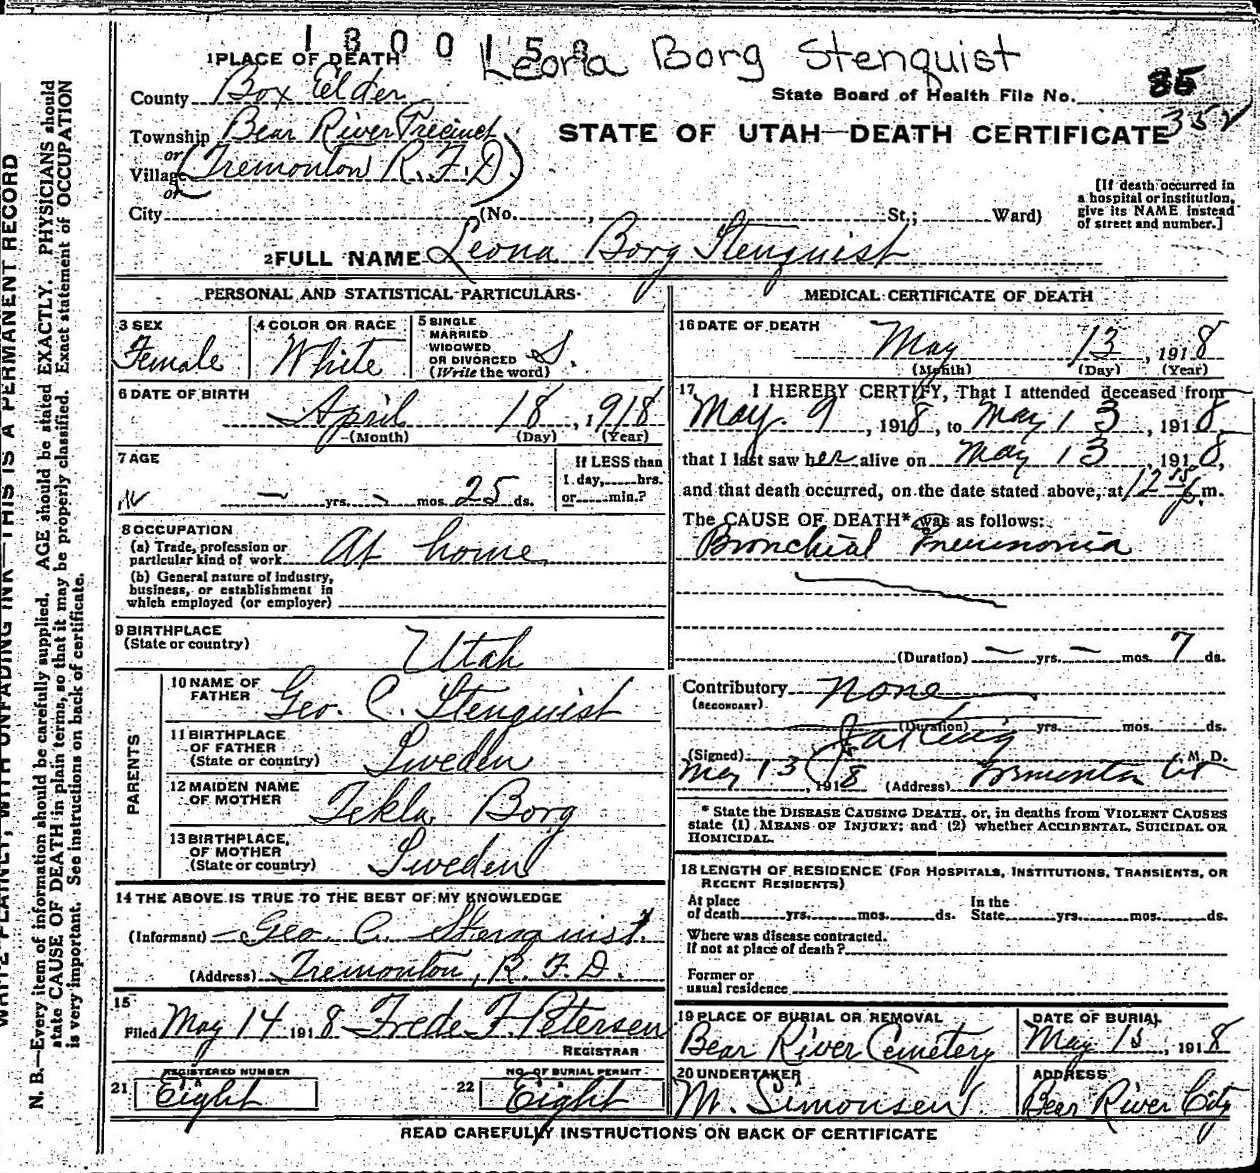 1800158
Leona Borg Stenquist
1 PLACE OF DEATH
County Box Elder
State Board of Health File No. 85
352
Township Bear River Precinct
or
Village (Tremonton R.F.D.)
or
STATE OF UTAH—DEATH CERTIFICATE
City (No. , St.; Ward)
[If death occurred in
a hospital or institution,
give its NAME instead
of street and number.]
2 FULL NAME Leona Borg Stenquist
PERSONAL AND STATISTICAL PARTICULARS
3 SEX
Female
4 COLOR OR RACE
White
5 SINGLE
MARRIED
WIDOWED
OR DIVORCED S.
(Write the word)
6 DATE OF BIRTH
April 18, 1918
(Month) (Day) (Year)
7 AGE
— yrs. — mos. 25 ds.
If LESS than
1 day, hrs.
or min.?
8 OCCUPATION
(a) Trade, profession or
particular kind of work At home
(b) General nature of industry,
business, or establishment in
which employed (or employer)
9 BIRTHPLACE
(State or country) Utah
PARENTS
10 NAME OF
FATHER Geo. C. Stenquist
11 BIRTHPLACE
OF FATHER
(State or country) Sweden
12 MAIDEN NAME
OF MOTHER Tekla Borg
13 BIRTHPLACE
OF MOTHER
(State or country) Sweden
14 THE ABOVE IS TRUE TO THE BEST OF MY KNOWLEDGE
(Informant) Geo C. Stenquist.
(Address) Tremonton, R.F.D.
15
Filed May 14 1918 Frede F. Petersen
REGISTRAR
21 REGISTERED NUMBER
Eight
22 NO. OF BURIAL PERMIT
Eight
MEDICAL CERTIFICATE OF DEATH
16 DATE OF DEATH
May 13, 1918
(Month) (Day) (Year)
17 I HEREBY CERTIFY, That I attended deceased from
May 9, 1918, to May 13, 1918,
that I last saw her alive on May 13 1918,
and that death occurred, on the date stated above, at 12 15 p.m.
The CAUSE OF DEATH* was as follows:
Bronchial Pneumonia
(Duration) — yrs. — mos. 7 ds.
Contributory none
(SECONDARY)
(Duration) yrs. mos. ds.
(Signed) M. D.
May 13, 1918 (Address)
* State the DISEASE CAUSING DEATH, or, in deaths from VIOLENT CAUSES
state (1) MEANS OF INJURY; and (2) whether ACCIDENTAL, SUICIDAL OR
HOMICIDAL.
18 LENGTH OF RESIDENCE (FOR HOSPITALS, INSTITUTIONS, TRANSIENTS, OR
RECENT RESIDENTS)
At place In the
of death yrs. mos. ds. State yrs. mos. ds.
Where was disease contracted.
If not at place of death?
Former or
usual residence
19 PLACE OF BURIAL OR REMOVAL
Bear River Cemetery
DATE OF BURIAL
May 15, 1918
20 UNDERTAKER
M. Simonsen.
ADDRESS
Bear River City
READ CAREFULLY INSTRUCTIONS ON BACK OF CERTIFICATE
WRITE PLAINLY, WITH UNFADING INK—THIS IS A PERMANENT RECORD
N. B.—Every item of information should be carefully supplied. AGE should be stated EXACTLY. PHYSICIANS should
state CAUSE OF DEATH in plain terms, so that it may be properly classified. Exact statement of OCCUPATION
is very important. See instructions on back of certificate.